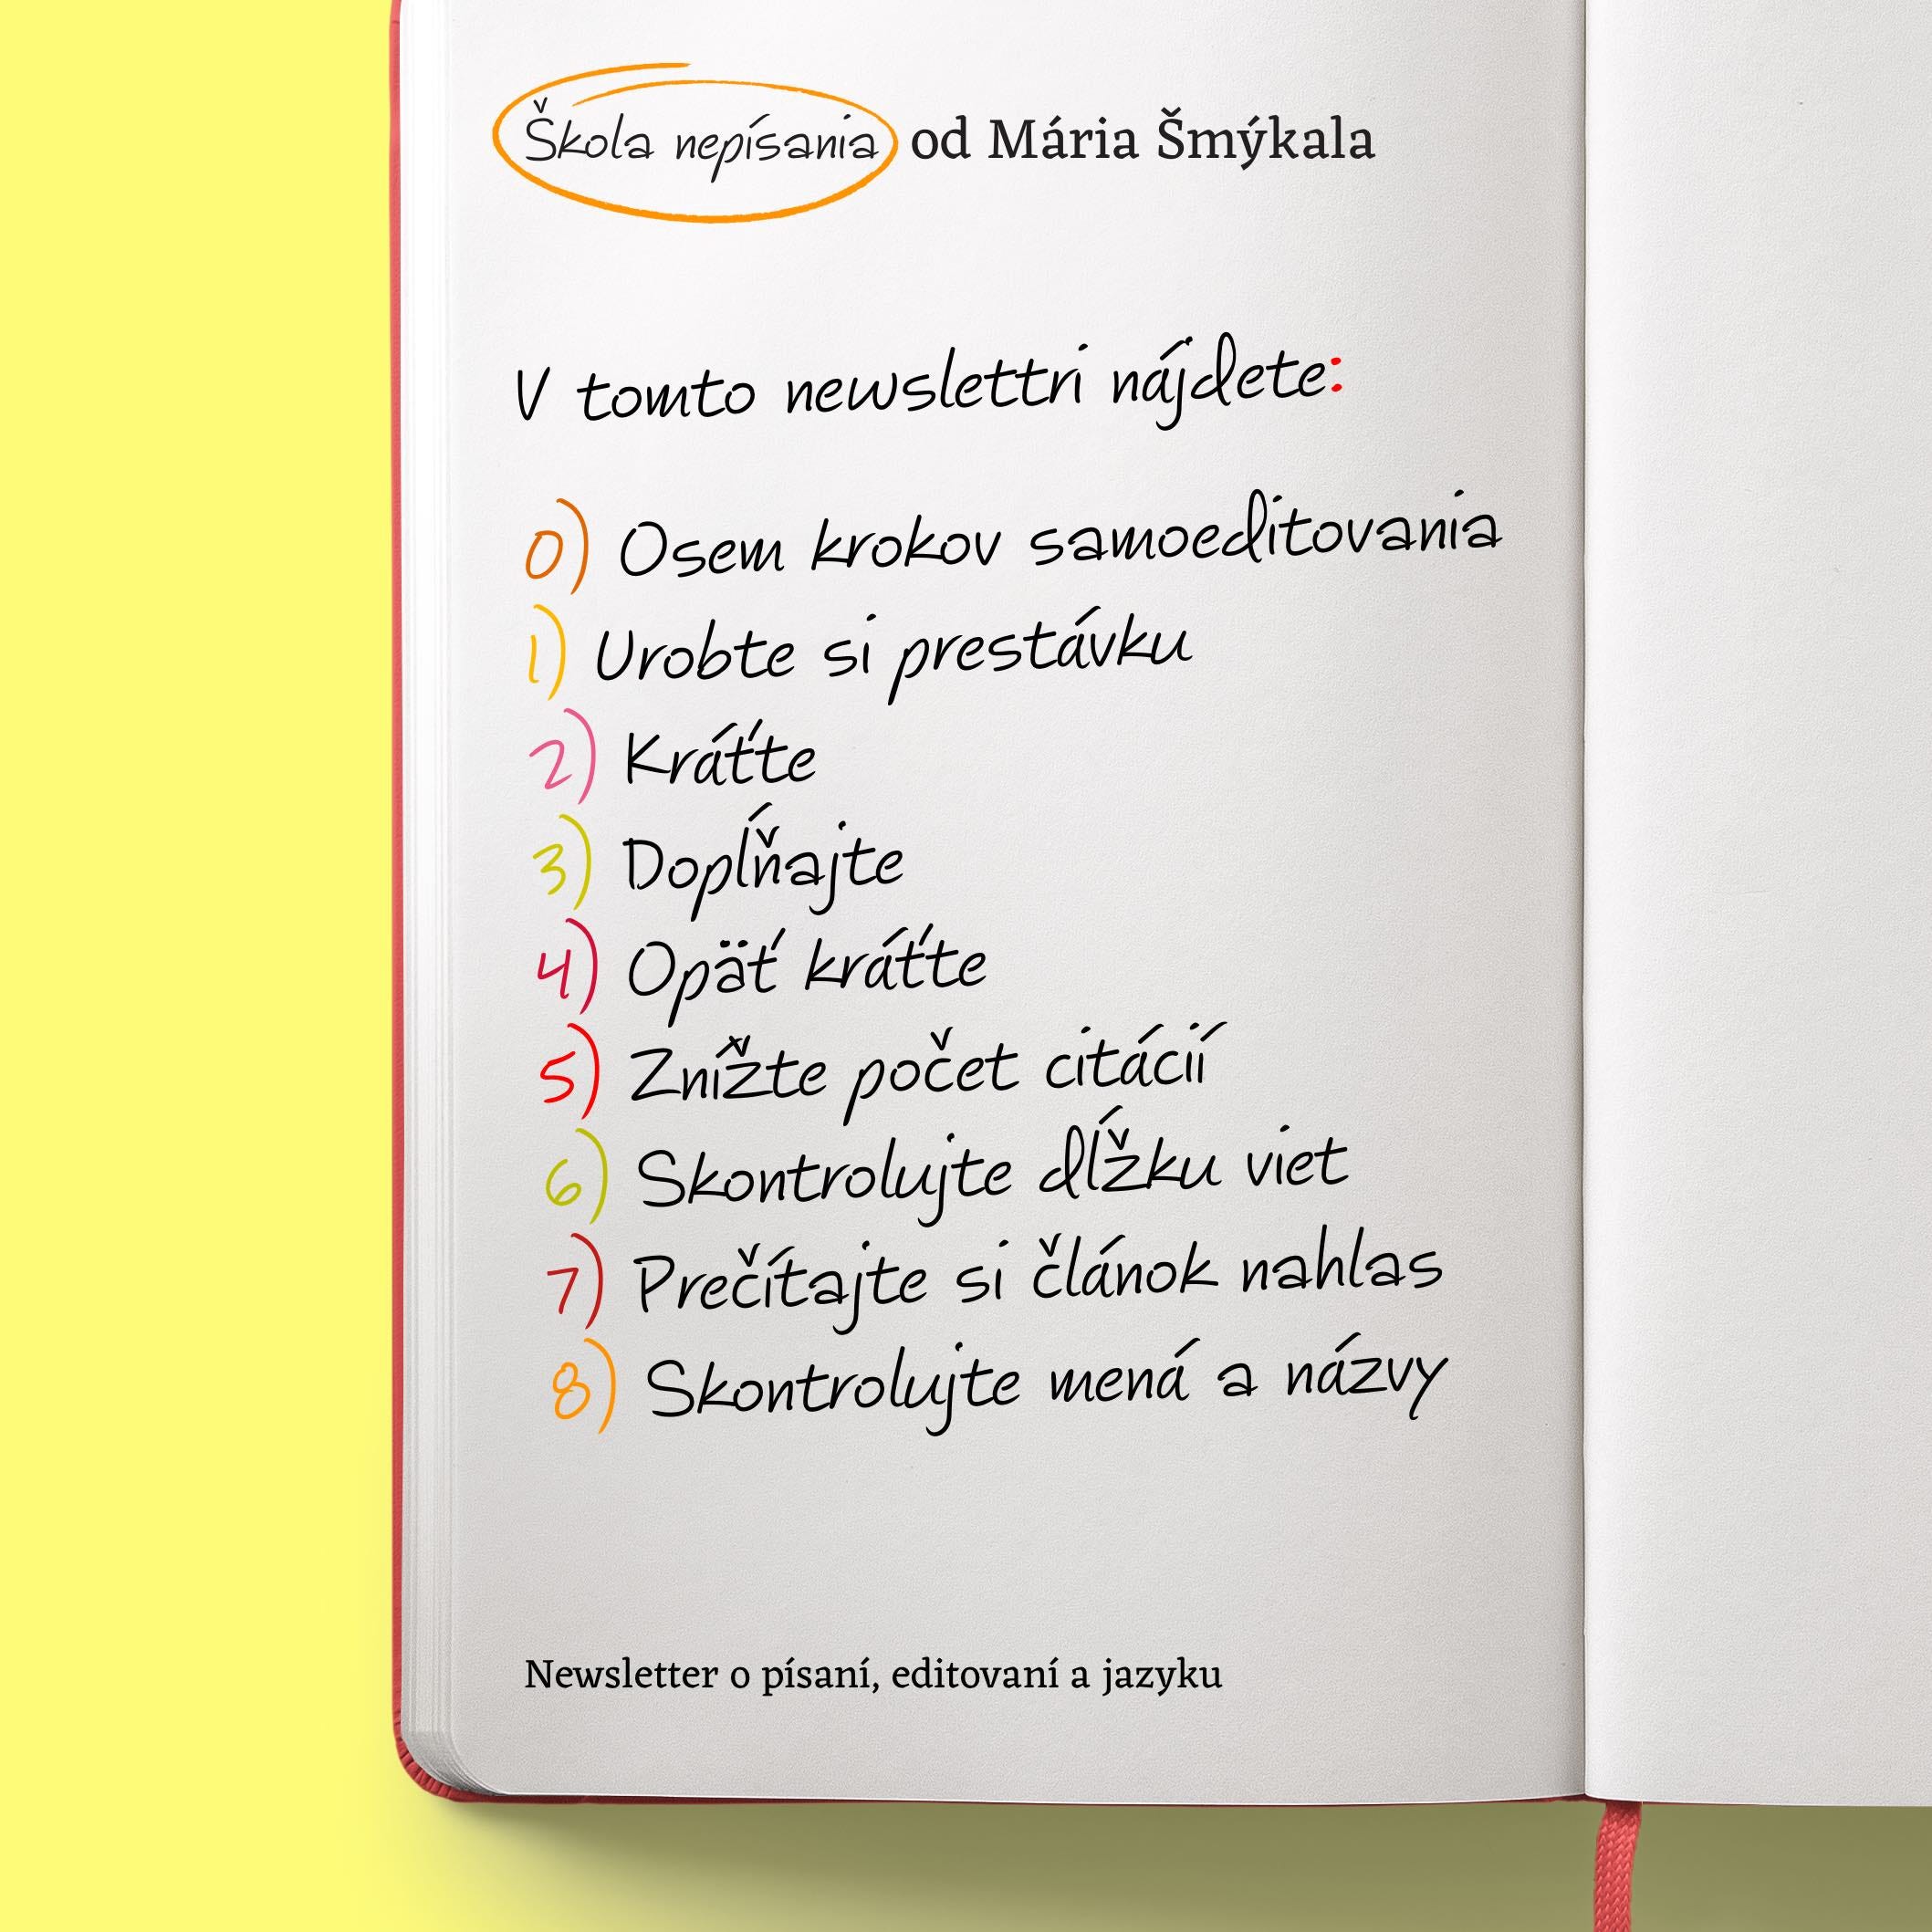 Škola nepísania od Mária Šmýkala
V tomto newslettri nájdete:
0) Osem krokov samoeditovania
1) Urobte si prestávku
2) Kráťte
3) Dopĺňajte
4) Opäť kráťte
5) Znížte počet citácií
6) Skontrolujte dĺžku viet
7) Prečítajte si článok nahlas
8) Skontrolujte mená a názvy
Newsletter o písaní, editovaní a jazyku